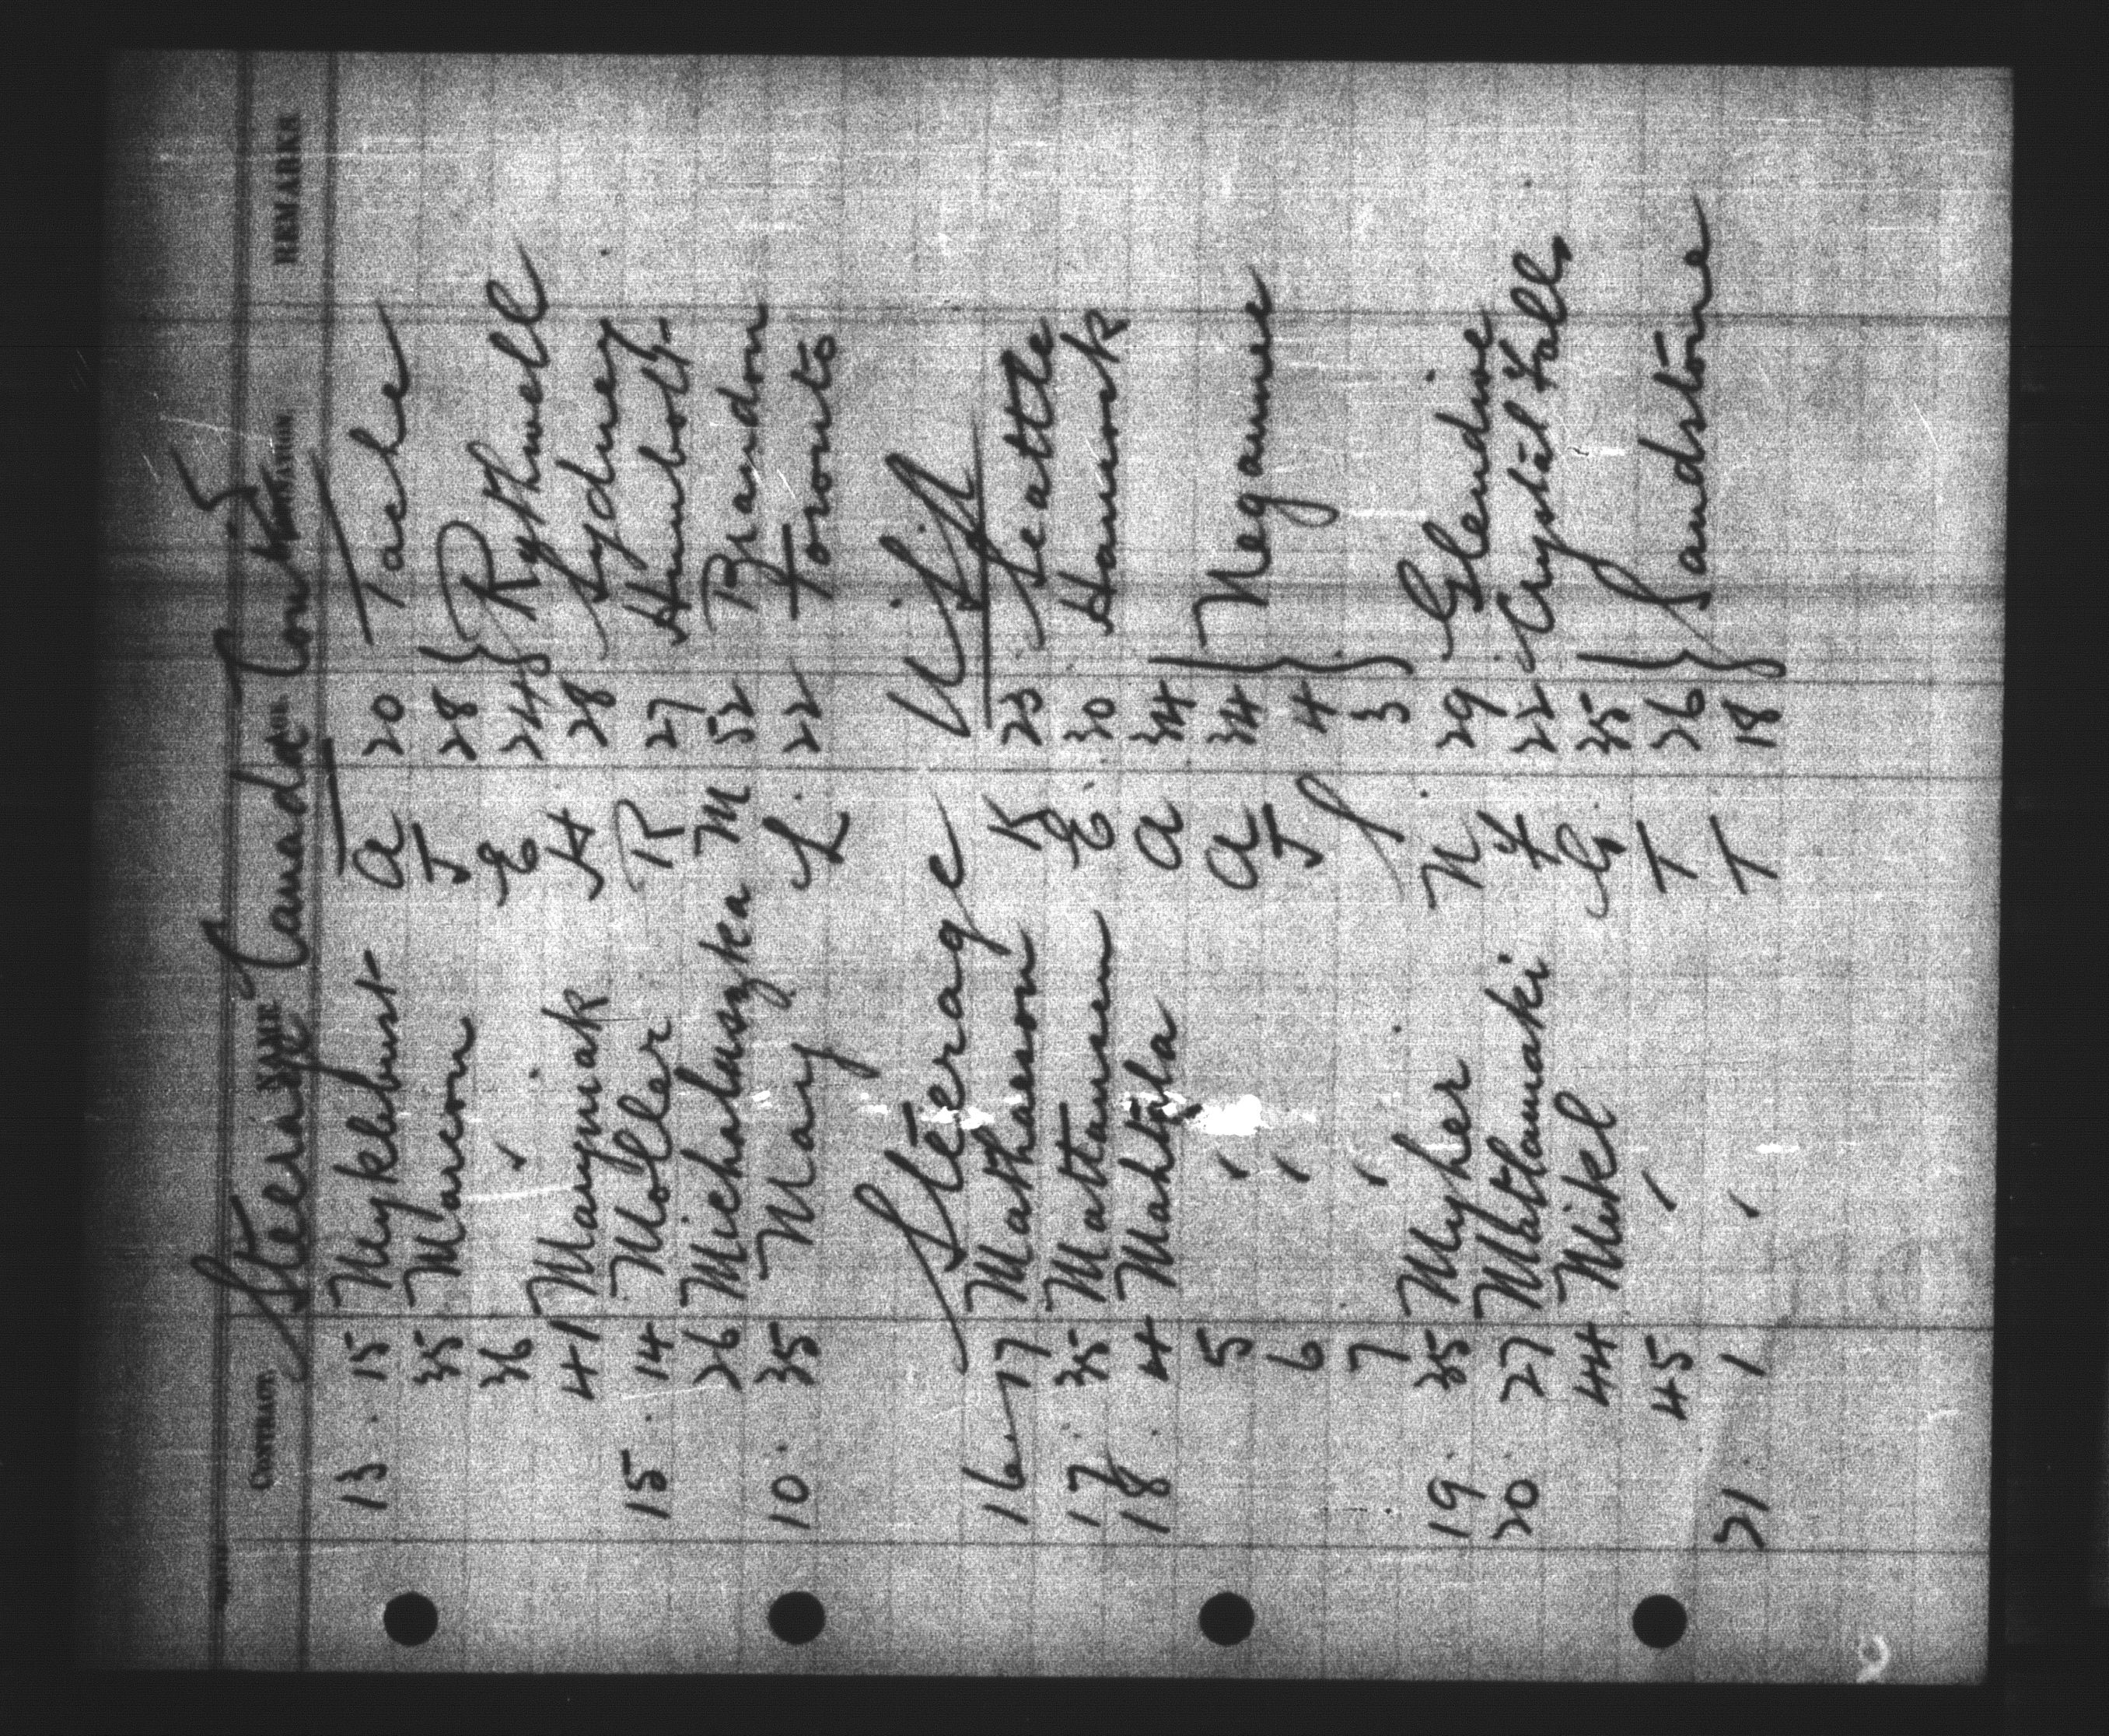 Steerage Canada Con't 5
CONTRACT. NAME DESTINATION REMARKS
13. 15 Myklebust A 20 Tache
35 Marcon J 28
36 " E 24 } Rythwell
41 Maryniak H 28 Sydney
15. 14 Moller R 27 Humboldt
26 Michaluszken M 52 Brandon
10. 35 Mary L 22 Toronto
Steerage U.S.
16 17 Mathaeson K 23 Seattle
17. 35 Mattausen E. 30 Hancock
18. 4 Mahtala A 34
5 " A 34 } Negaunee
6 " J 4
7 " S 3
19. 35 Myher N 29 Glendive
20. 27 Matlamaki F 22 Crystal Falls
44 Mikel G 35
45 " T 26 } Sandstone
21. 1 " T 18
9